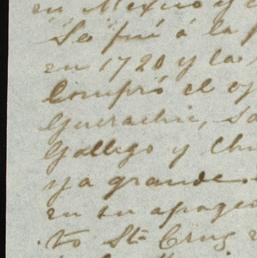 en Mexico y
Se fué á la
en 1720 y la
Compró el
Guerachic,
Gallego y
ya grande
en su apogeo
to Sta Cruz